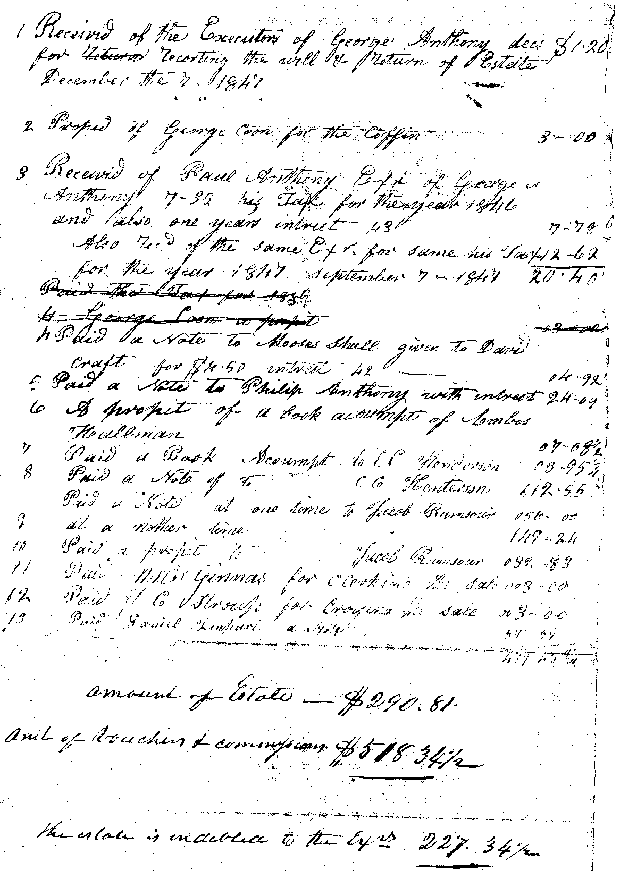 1 Received of the Executors of George Anthony deci $1.20
for recorting the will & Return of Estate
December the 7 1847
2 Proped of George Coon for the Coffin 3-00
3 Received of Paul Anthony Exr of George
Anthony 7-35 his Tax for the year 1846
and also one years intrest 43 7-78
Also Recd of the same Exr. for same his Tax 12-62
for the year 1847 September 7-1847 20-40
Paid the Tax for
4 George Coon a propit
4 Paid a Note to Mooses Shall given to David
Craft for $4.50 intrest 42 04-92
5 Paid a Note to Philip Anthony with intrest 24-09
6 A propit of a book acoumpt of
Houllman 07-08½
7 Paid a Book Acoumpt to C C Henderson 03-95¼
8 Paid a Note of to C C Henderson 112-55
Paid a Note at one time to Jacob Ramsour 050-00
9 at a nother time 149-24
10 Paid a propit to Jacob Ramsour 092-83
11 Paid for Clerking the sale 003-00
12 Paid for Croying the sale 03-00
13 Paid Daniel a Note
amount of Estate — $290.81
Amt of Vouchers & commissions $518 34½
the estate is indebted to the Exrs 227.34½